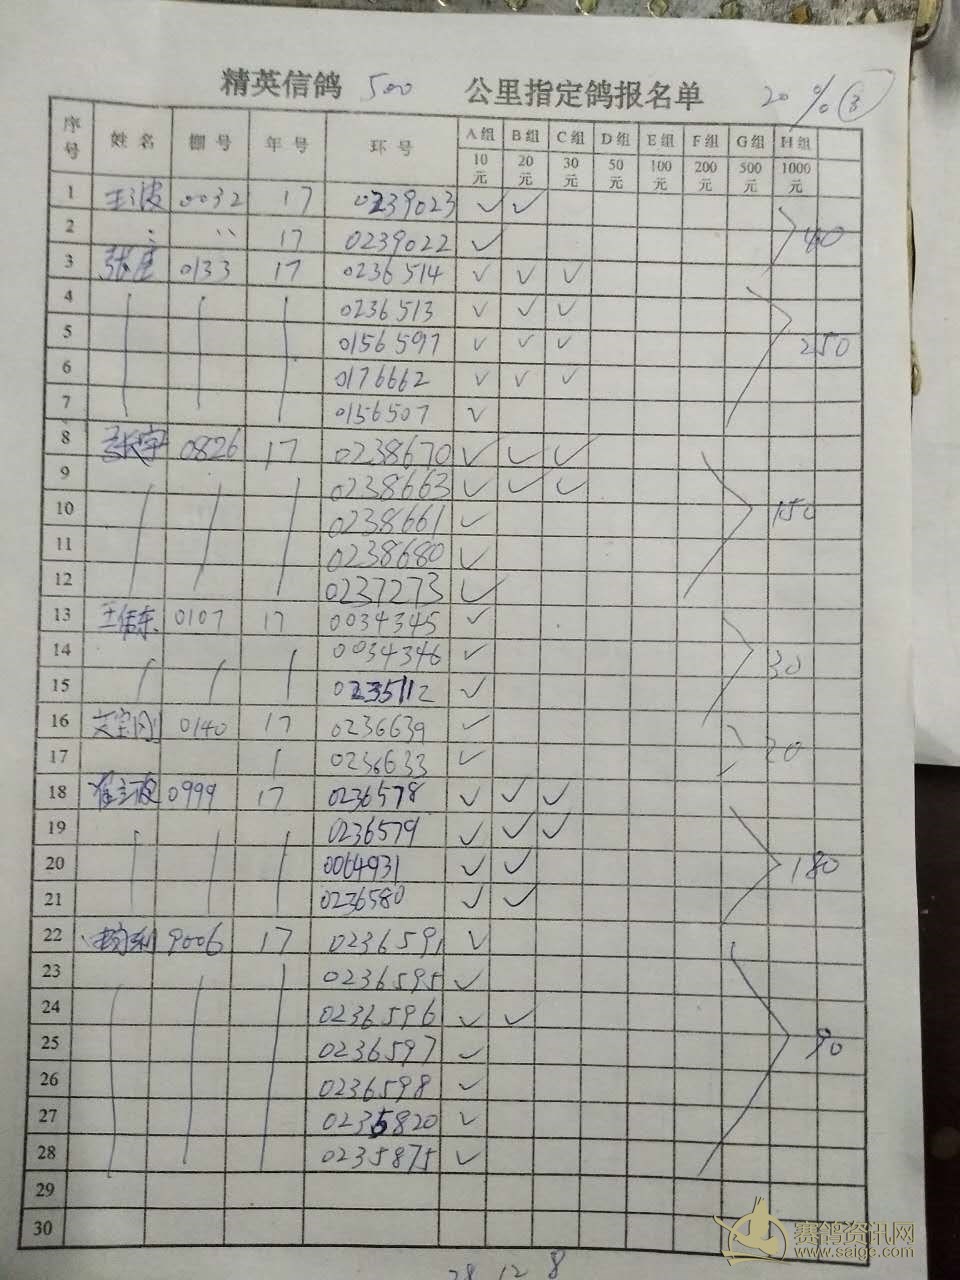 精英信鸽 500 公里指定鸽报名单 20 % ③
序号 姓名 棚号 年号 环号 A组 B组 C组 D组 E组 F组 G组 H组
10元 20元 30元 50元 100元 200元 500元 1000元
1 王波 0032 17 0239023 ✓ ✓
2 17 0239022 ✓ 40
3 0133 17 0236514 ✓ ✓ ✓
4 0236513 ✓ ✓ ✓
5 0156597 ✓ ✓ ✓ 250
6 0176662 ✓ ✓ ✓
7 0156507 ✓
8 张宇 0826 17 0238670 ✓ ✓ ✓
9 0238663 ✓ ✓ ✓
10 0238661 ✓ 150
11 0238680 ✓
12 0237273 ✓
13 王伟东 0107 17 0034345 ✓
14 0034346 ✓ 30
15 0235112 ✓
16 艾宝刚 0140 17 0236639 ✓
17 0236633 ✓ 20
18 崔立波 0999 17 0236578 ✓ ✓ ✓
19 0236579 ✓ ✓ ✓
20 0064931 ✓ ✓ 180
21 0236580 ✓ ✓
22 9006 17 0236591 ✓
23 0236595 ✓
24 0236596 ✓ ✓
25 0236597 ✓ 90
26 0236598 ✓
27 0235820 ✓
28 0235875 ✓
29
30
28 12 8
赛鸽资讯网
www.saige.com